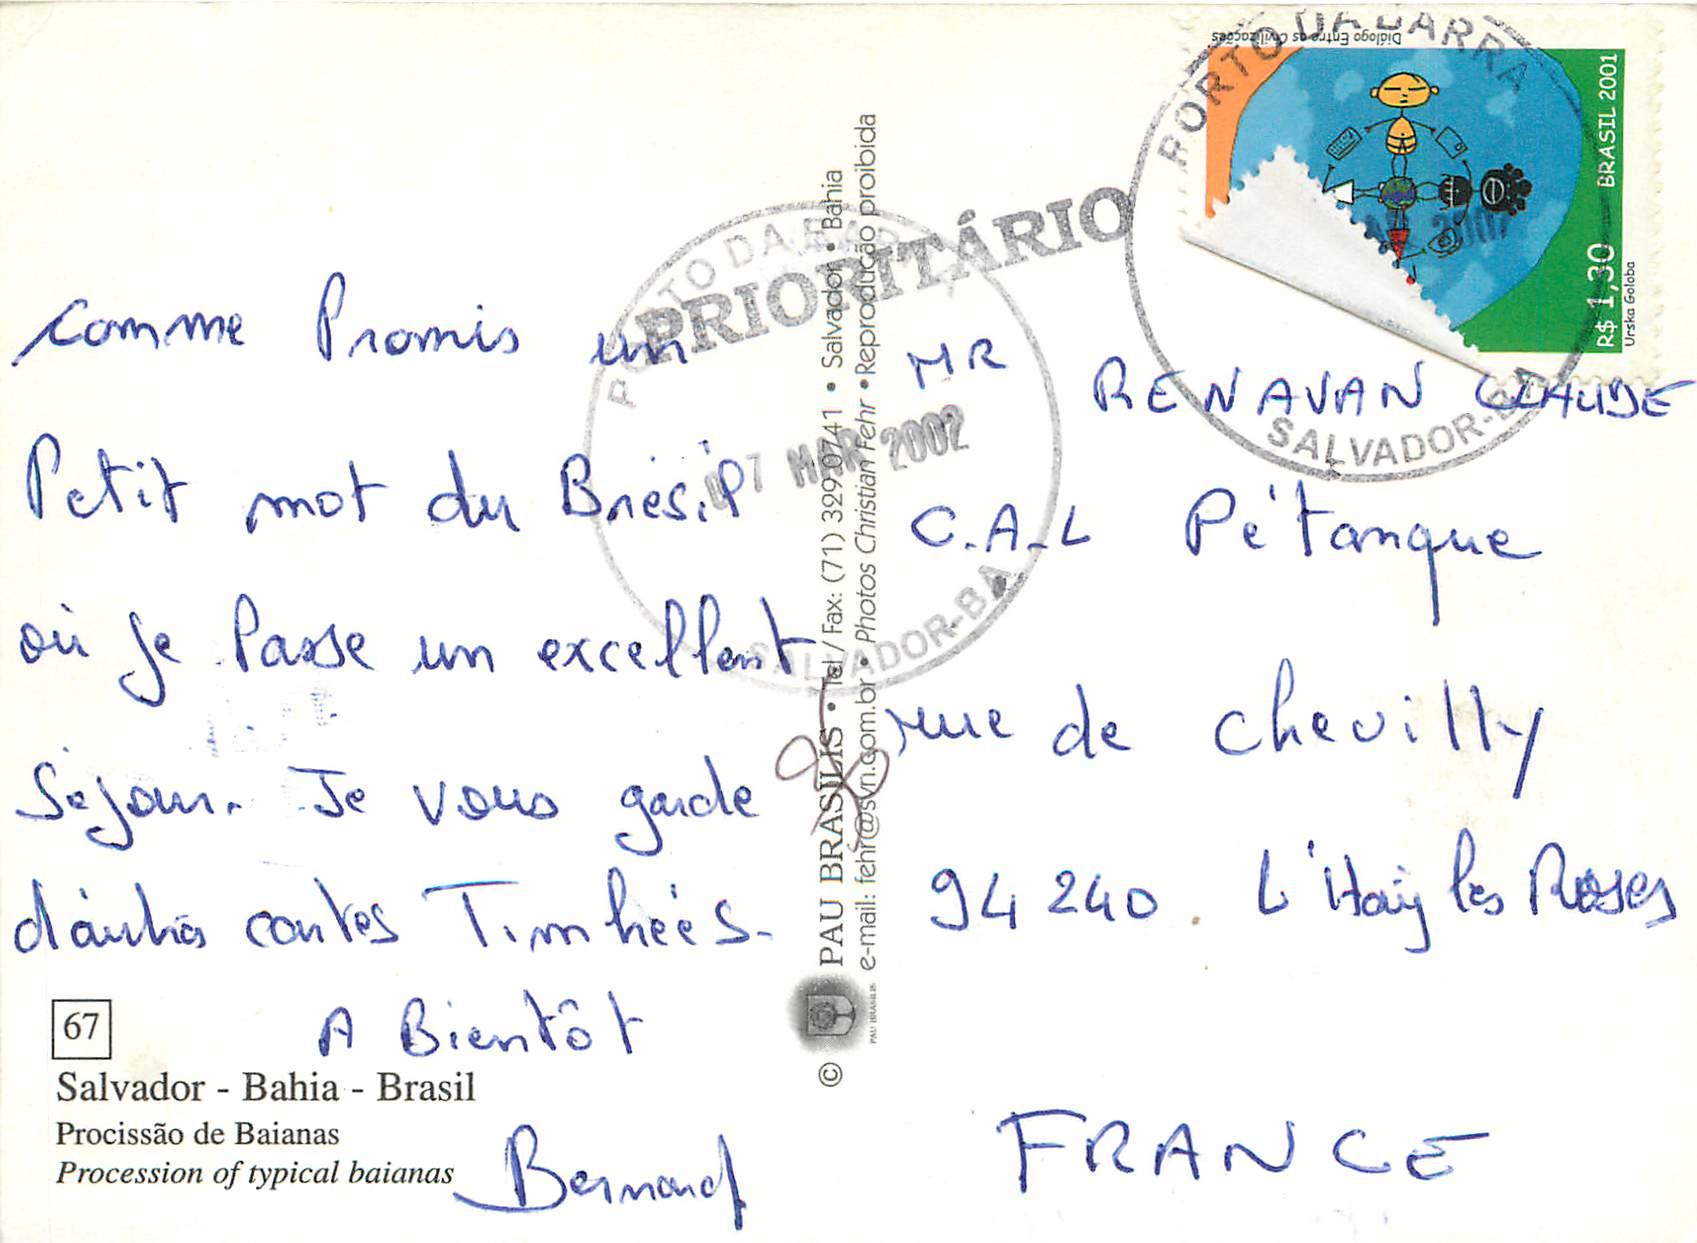 comme Promis un
Petit mot du Brésil
où je Passe un excellent
Séjour. Je vous garde
d'autres cartes Timbrées.
A Bientôt
Bernard
67
Salvador - Bahia - Brasil
Procissão de Baianas
Procession of typical baianas
© PAU BRASILIS • Tel / Fax: (71) 329.0741 • Salvador • Bahia
e-mail: fehr@svn.com.br • Photos Christian Fehr • Reprodução proibida
PAU BRASILIS
PRIORITÁRIO
PORTO DA BARRA
07 MAR 2002
SALVADOR-BA
Diálogo Entre as Civilizações
BRASIL 2001
R$ 1,30
Urska Golob
PORTO DA BARRA
SALVADOR-BA
MR RENAVAN CLAUDE
C.A.L Pétanque
rue de chevilly
94240. L'Haÿ les Roses
FRANCE